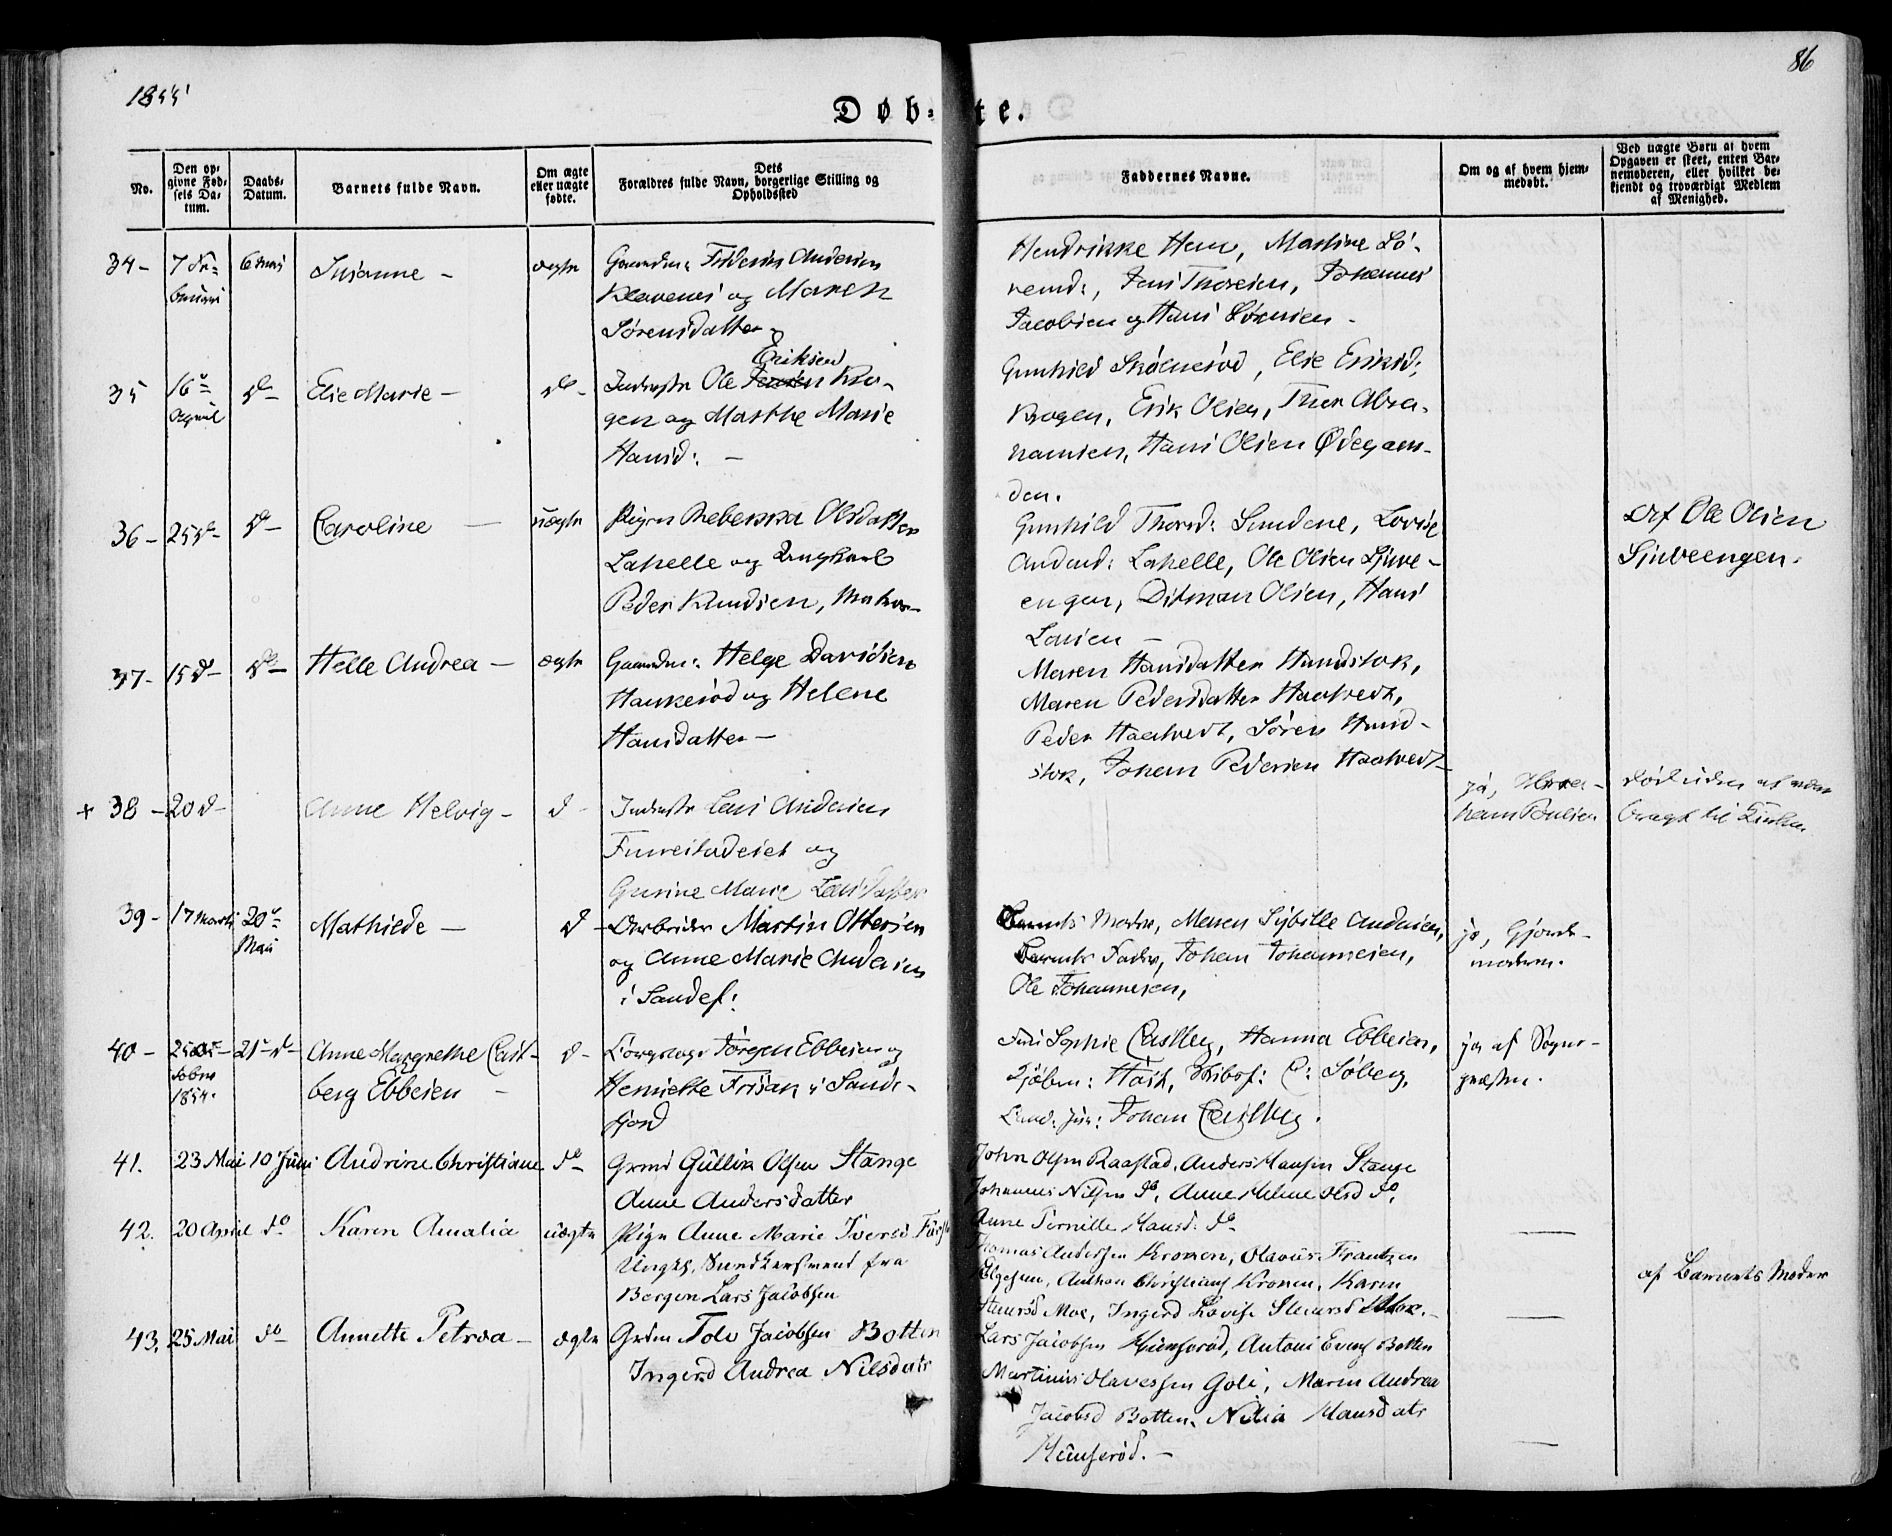 1855
86
Døb=te.
No.
Den op-
givne Fød-
sels Da-
tum.
Daabs-
Datum.
Barnets fulde Navn.
Om ægte
eller uægte
fødte.
Dets
Forældres fulde Navn, borgerlige Stilling og
Opholdssted
Faddernes Navne.
Om og af hvem hjem-
medøbt.
Ved uægte Børn af hvem
Opgaven er skeet, enten Bar-
nemoderen, eller hvilket be-
kjendt og troværdigt Medlem
af Menighed.
34- 7 6 Mai Susanne - ægte Andersen
Klavenes og Maren
Sørensdatter
Hendrikke Hem, Martine Sø-
rensd:, Jens Thoresen, Johannes
Jacobsen og Hans Sørensen -
35 16 April do- Elie Marie - do- Inderste Ole Eriksen Kro-
gen og Marthe Marie
Hansd: -
Gunhild Skolnesød, Elie Eriksd:
Krogen, Erik Olsen, Thor Abra-
hamsen, Hans Olsen Ødegaar-
den.
36- 25 do- do- Caroline - uægte Pigen Rebekka Olsdatter
Lahelle og Ungkarl
Peder Knudsen,
Gunhild Thorsd: Sundene, Lovise
Andersd: Lahelle, Ole Olsen Sjue-
engen, Ditman Olsen, Hans
Larsen -
Af Ole Olsen
Sjuveengen.
37- 15 d- do- Helle Andrea - ægte Gaardm: Helge Davidsen
Haukerød og Helene
Hansdatter -
Maren Hansdatter Hundstok,
Maren Pedersdatter Haatvedt,
Peder Haatvedt, Søren Hund-
stok, Johan Pedersen Haatvedt
+ 38 - 20 d- Anne Helvig - d- Inderste Lars Andersen
og
Gurine Marie Larsdatter
ja, Abra-
ham Poulsen
død uden at være
bragt til Kirken
39- 17 Marts 20 Mai Mathilde - d- Arbeider Martin Ottersen
og Anne Marie Andersen
i Sandef:
Barnets Moder, Maren Sybille Andersen,
Barnets Fader, Johan Johannesen,
Ole Johannesen,
ja, Gjorde-
moderen.
40- 25 Octobr 1854. 21 d- Anne Margrethe Cast-
berg Ebbesen -
d- Jørgen Ebbesen og
Henriette Frisak i Sande-
fjord
Sophie Castberg, Hanna Ebbesen,
Kjøbm: Høst, Skibsf: C: Søberg,
Johan Castberg.
ja af Sogne-
præsten.
41. 23 Mai 10 Juni Andrine Christiane do- Grmd Gullik Olsen Stange
Anne Andersdatter
John Olsen Raastad, Anders Hansen Stange
Johannes Nilsen do, Anne Helene Olsd do,
Anne Pernille Hansd: do-
42. 20 April do Karen Amalia uægte Pige Anne Marie Iversd
Ungk. Snedkersvend fra
Bergen Lars Jacobsen
Thomas Andersen Kronen, Olavus Frantzen
Helgesen, Anthon Christians Kronen, Karen
Moe, Ingerd Lovise Moe. -
af Barnets Moder
43. 25 Mai do Annette Petrea - ægte Grdm Tolv Jacobsen Botten
Ingerd Andrea Nilsdatr
Lars Jacobsen Hunserød, Antoni Botten
Martinius Olavessen Goli, Maren Andrea
Jacobsd Botten, Nilia Hansdatr
Hunserød. -